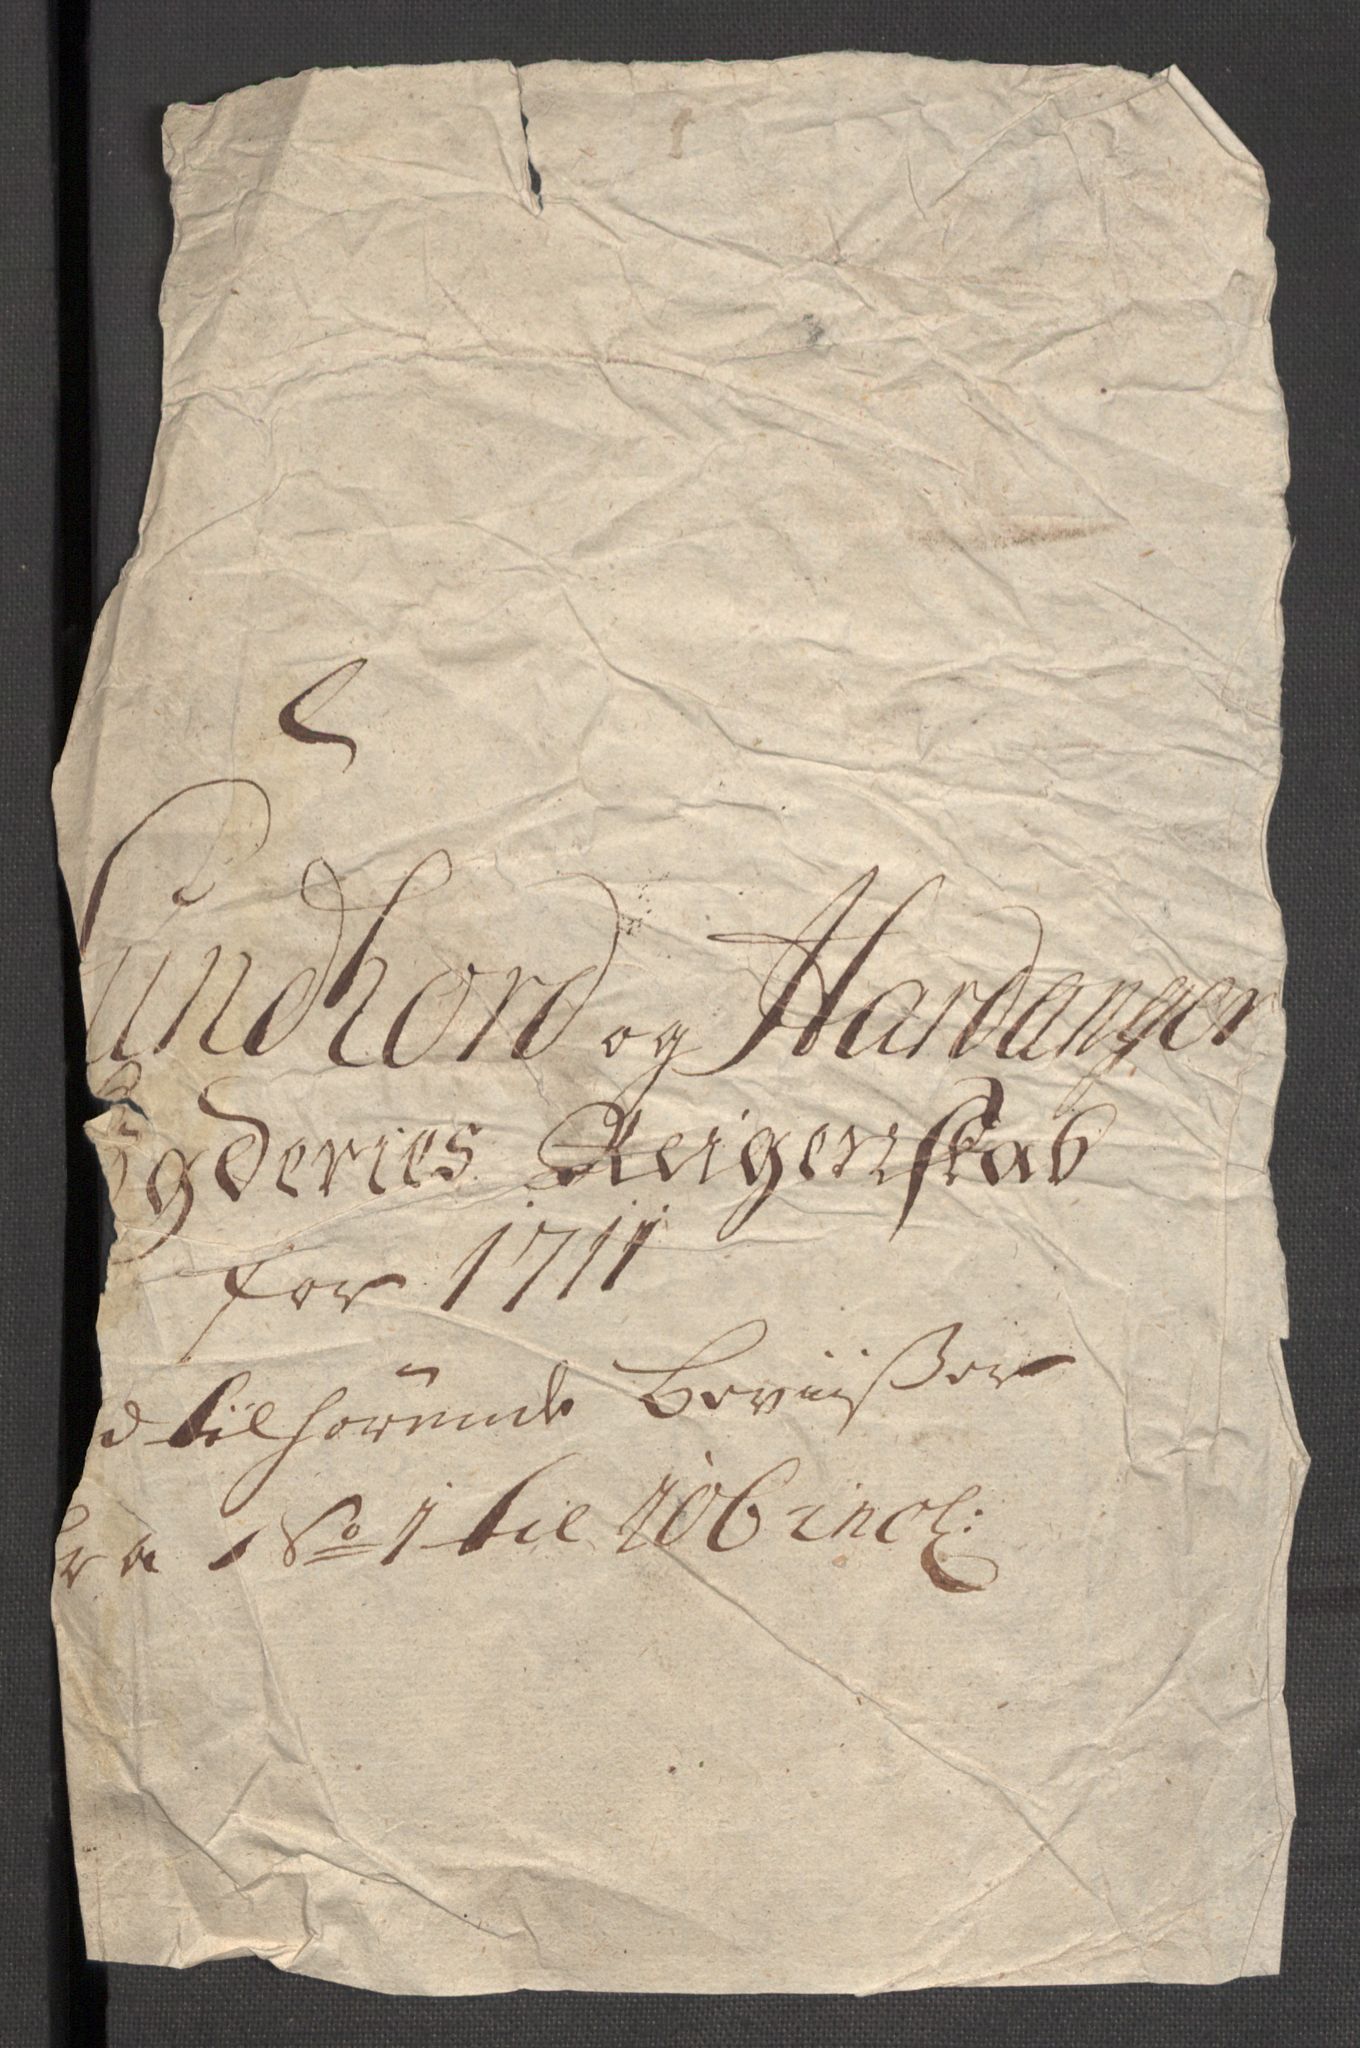 Sundhord og Hardanger
ogderies Reigenskab
for 1711
d tilhörende Beviißer
fra No 1 til 106 incl: